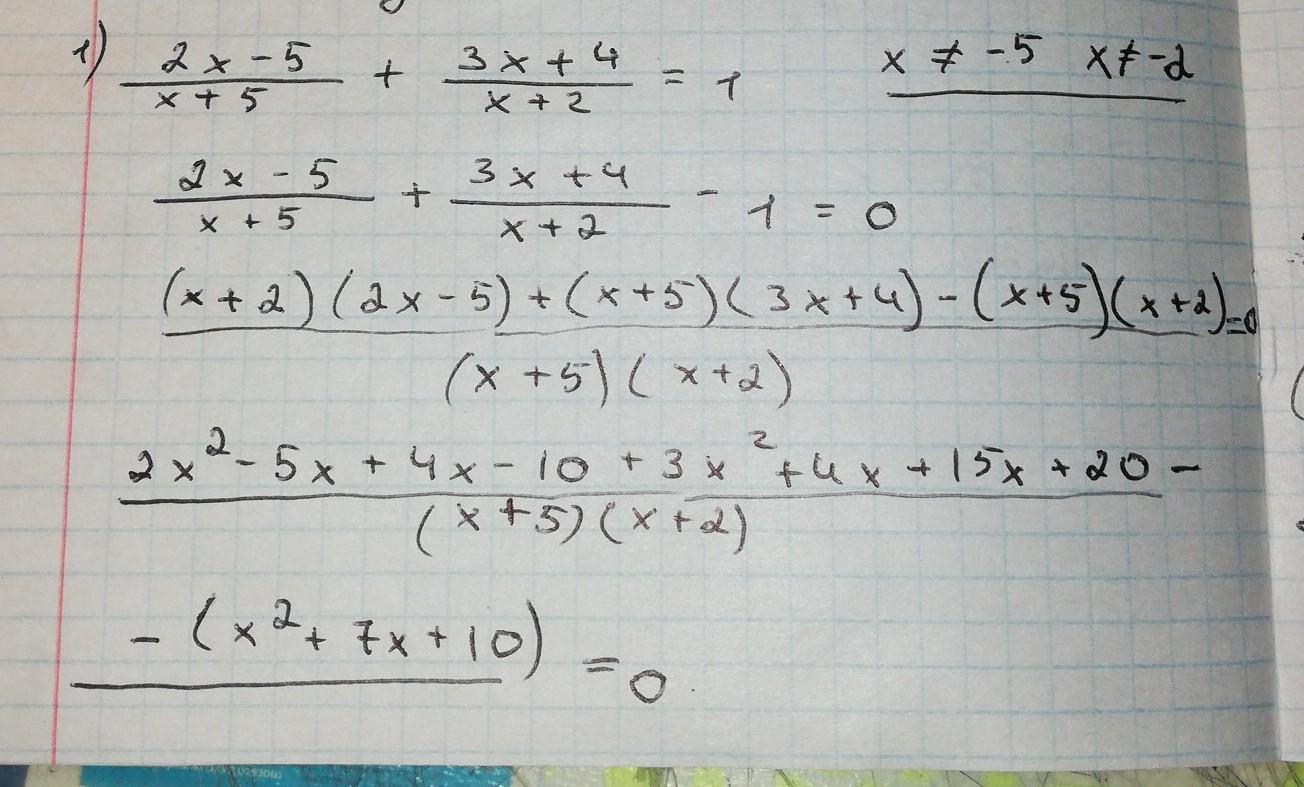 1) (2x-5)/(x+5) + (3x+4)/(x+2) = 1 x ≠ -5 x ≠ -2
(2x-5)/(x+5) + (3x+4)/(x+2) - 1 = 0
((x+2)(2x-5)+(x+5)(3x+4)-(x+5)(x+2))/((x+5)(x+2)) = 0
(2x²-5x+4x-10+3x²+4x+15x+20-)/((x+5)(x+2))
-(x²+7x+10) = 0